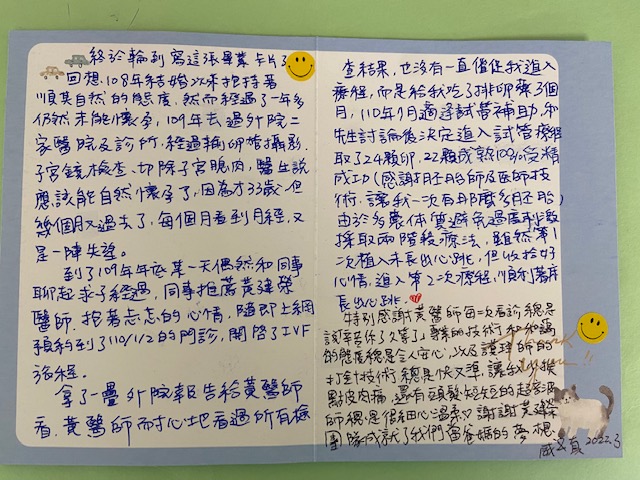 終於輪到寫這張畢業卡片了
回想108年結婚以來抱持著
順其自然的態度,然而經過了一年多
仍然未能懷孕,109年去過外院二
家醫院及診所,經過輸卵管攝影.
子宮鏡檢查、切除子宮瘜肉,醫生說
應該能自然懷孕了,因為才33歲,但
幾個月又過去了,每個月看到月經,又
是一陣失望。
到了109年年底某一天偶然和同事
聊起求子經過,同事推薦黃建榮
醫師.抱著忐忑的心情,隨即上網
預約到了110/1/2的門診,開啟了IVF
旅程。
拿了一疊外院報告給黃醫師
看,黃醫師耐心地看過所有檢
查結果,也沒有一直催促我進入
療程,而是給我吃了排卵藥3個
月,110年7月適逢試管補助,和
先生討論後決定進入試管療程
取了24顆卵,22顆成熟100%受精
成功(感謝胚胎師及醫師技
術,讓我一次有那麼多胚胎)
由於多囊體質避免過度刺激
採取兩階段療法,雖然第1
次植入未長出心跳,但收拾好
心情,進入第2次療程,順利著床
長出心跳.
特別感謝黃醫師每次看診總是
說辛苦你久等了,專業的技術和和藹
的態度總是令人安心,以及護理師的
打針技術總是快又準,讓我少挨
點皮肉痛,還有頭髮短短的超音波
師總是很細心溫柔,謝謝黃建榮
團隊成就了我們當爸媽的夢想.
Thank you!!
2022.3